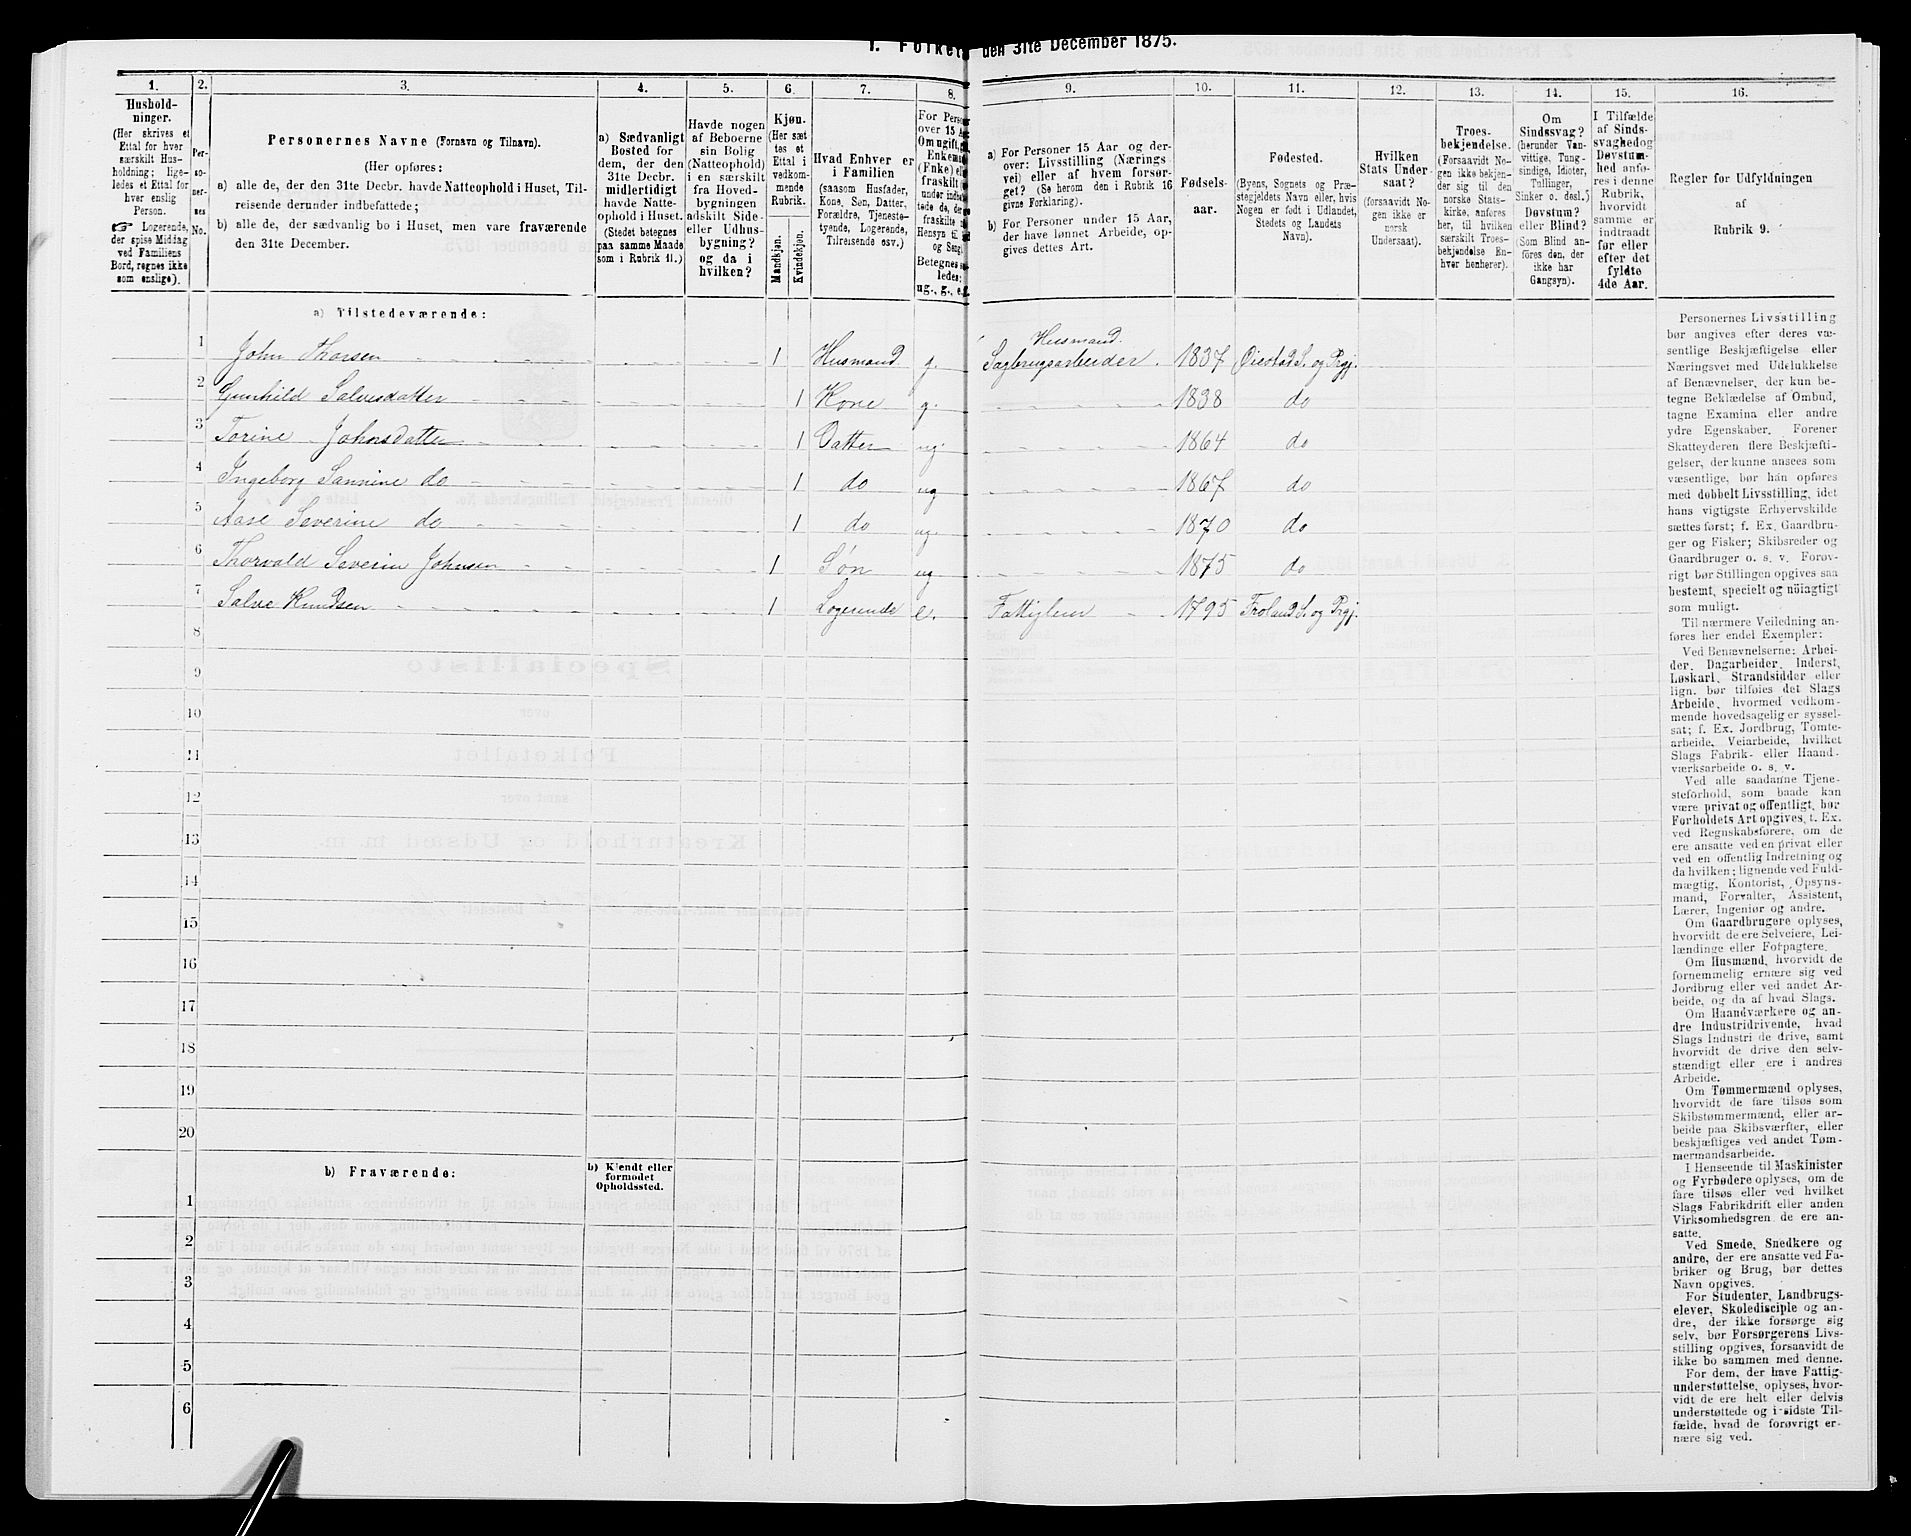 den 31te December 1875.
1. 2. 3. 4. 5. 6. 7. 8. 9. 10. 11. 12. 13. 14. 15. 16.
Hushold-
ninger.
(Her skrives et
Ettal for hver
særskilt Hus-
holdning; lige-
ledes et Ettal for
hver enslig
Person.
☞ Logerende,
der spise Middag
ved Familiens
Bord, regnes ikke
som enslige).
Per-
so-
ner-
nes
No.
Personernes Navne (Fornavn og Tilnavn).
(Her opføres:
a) alle de, der den 31te Decbr. havde Natteophold i Huset, Til-
reisende derunder indbefattede;
b) alle de, der sædvanlig bo i Huset, men vare fraværende
den 31te December.
a) Sædvanligt
Bosted for
dem, der den
31te Decbr.
midlertidigt
havde Natte-
ophold i Huset.
(Stedet betegnes
paa samme Maade
som i Rubrik 11.)
Havde nogen
af Beboerne
sin Bolig
(Natteophold)
i en særskilt
fra Hoved-
bygningen
adskilt Side-
eller Udhus-
bygning?
og da i
hvilken?
Kjøn.
(Her sæt
tes et
Ettal i
vedkom-
mende
Rubrik.
Mandkjøn.
Kvindekjøn.
Hvad Enhver er
i Familien
(saasom Husfader,
Kone, Søn, Datter,
Forældre, Tjeneste-
tyende, Logerende,
Tilreisende osv.).
For Pers
over 15
Om ugift,
Enkem
(Enke) el
fraskilt
under indbe
tede de, der
fraskilte
Hensyn til
og Seng
Betegnes s
ledes:
ug., g., e.
a) For Personer 15 Aar og der-
over: Livsstilling (Nærings
vei) eller af hvem forsør-
get? (Se herom den i Rubrik 16
givne Forklaring).
b) For Personer under 15 Aar,
der have lønnet Arbeide, op-
gives dettes Art.
Fødsels-
aar.
Fødested.
(Byens, Sognets og Præ-
stegjeldets Navn eller, hvis
Nogen er født i Udlandet,
Stedets og Landets
Navn).
Hvilken
Stats Under-
saat?
(forsaavidt No-
gen ikke er
norsk
Undersaat).
Troes-
bekjendelse.
(Forsaavidt No-
gen ikke bekjen-
der sig til den
norske Stats-
kirke, anføres
her, til hvilken
særskilt Troes-
bekjendelse En-
hver henhører).
Om
Sindssvag?
(herunder Van-
vittige, Tung-
sindige, Idioter,
Tullinger,
Sinker o. desl.)
Døvstum?
eller Blind?
(Som Blind an-
føres den, der
ikke har
Gangsyn).
I Tilfælde
af Sinds-
svaghed og
Døvstum-
hed anfø-
res i denne
Rubrik,
hvorvidt
samme er
indtraadt
før eller
efter det
fyldte
4de Aar.
Regler for Udfyldningen
af
Rubrik 9.
a) Tilstedeværende:
1 John Thorsen 1 Husmand g. Husmand. Sagbrugsarbeider. 1837 Øiestad S. og Prgj.
2 Gunhild Salvesdatter 1 Kone g. 1838 do
3 Torine Johnsdatter 1 Datter ug. 1864 do
4 Ingeborg Sannine do 1 do ug 1867 do
5 Aase Severine do 1 do ug. 1870 do
6 Thorvald Severin Johnsen 1 Søn ug 1875 do
7 Salve Knudsen 1 Logerende e. Fattiglem 1795 Froland S. og Prgj.
8
9
10
11
12
13
14
15
16
17
18
19
20
b) Fraværende:
b) Kjendt eller
formodet
Opholdssted.
1
2
3
4
5
6
Personernes Livsstilling
bør angives efter deres væ-
sentlige Beskjæftigelse eller
Næringsvei med Udelukkelse
af Benævnelser, der kun be-
tegne Beklædelse af Ombud,
tagne Examina eller andre
ydre Egenskaber. Forener
Skatteyderen flere Beskjæfti-
gelser, der kunne ansees som
væsentlige, bør han opføres
med dobbelt Livsstilling, idet
hans vigtigste Erhvervskilde
sættes først; f. Ex. Gaardbru-
ger og Fisker; Skibsreder og
Gaardbruger o. s. v. Forøv-
rigt bør Stillingen opgives saa
bestemt, specielt og nöiagtigt
som muligt.
Til nærmere Veiledning an-
føres her endel Exempler:
Ved Benævnelserne: Arbei-
der, Dagarbeider, Inderst,
Løskarl, Strandsidder eller
lign. bør tilføies det Slags
Arbeide, hvormed vedkom-
mende hovedsagelig er syssel-
sat; f. Ex. Jordbrug, Tomte-
arbeide, Veiarbeide, hvilket
Slags Fabrik- eller Haand-
værksarbeide o. s. v.
Ved alle saadanne Tjene-
steforhold, som baade kan
være privat og offentligt, bør
Forholdets Art opgives, t. Ex.
ved Regnskabsførere, om de
ere ansatte ved en privat eller
ved en offentlig Indretning og
da hvilken; lignende ved Fuld-
mægtig, Kontorist, Opsyns-
mand, Forvalter, Assistent,
Lærer, Ingeniør og andre.
Om Gaardbrugere oplyses,
hvorvidt de ere Selveiere, Lei-
lændinge eller Forpagtere.
Om Husmænd, hvorvidt de
fornemmelig ernære sig ved
Jordbrug eller ved andet Ar-
beide, og da af hvad Slags.
Om Haandværkere og an-
dre Industridrivende, hvad
Slags Industri de drive, samt
hvorvidt de drive den selv-
stændigt eller ere i andres
Arbeide.
Om Tømmermænd oplyses,
hvorvidt de fare tilsøs som
Skibstømmermænd, eller ar-
beide paa Skibsværfter, eller
beskjæftiges ved andet Töm-
mermandsarbeide.
I Henseende til Maskinister
og Fyrbødere oplyses, om de
fare tilsøs eller ved hvilket
Slags Fabrikdrift eller anden
Virksomhedsgren de ere an-
satte.
Ved Smede, Snedkere og
andre, der ere ansatte ved Fa-
briker og Brug, bør dettes
Navn opgives.
For Studenter, Landbrugs-
elever, Skoledisciple og an-
dre, der ikke forsørge sig
selv, bør Forsørgerens Livs-
stilling opgives, forsaavidt de
ikke bo sammen med denne.
For dem, der have Fattig-
understøttelse, oplyses, hvor-
vidt de ere helt eller delvis
understøttede og i sidste Til-
fælde, hvad de forøvrigt er-
nære sig ved.